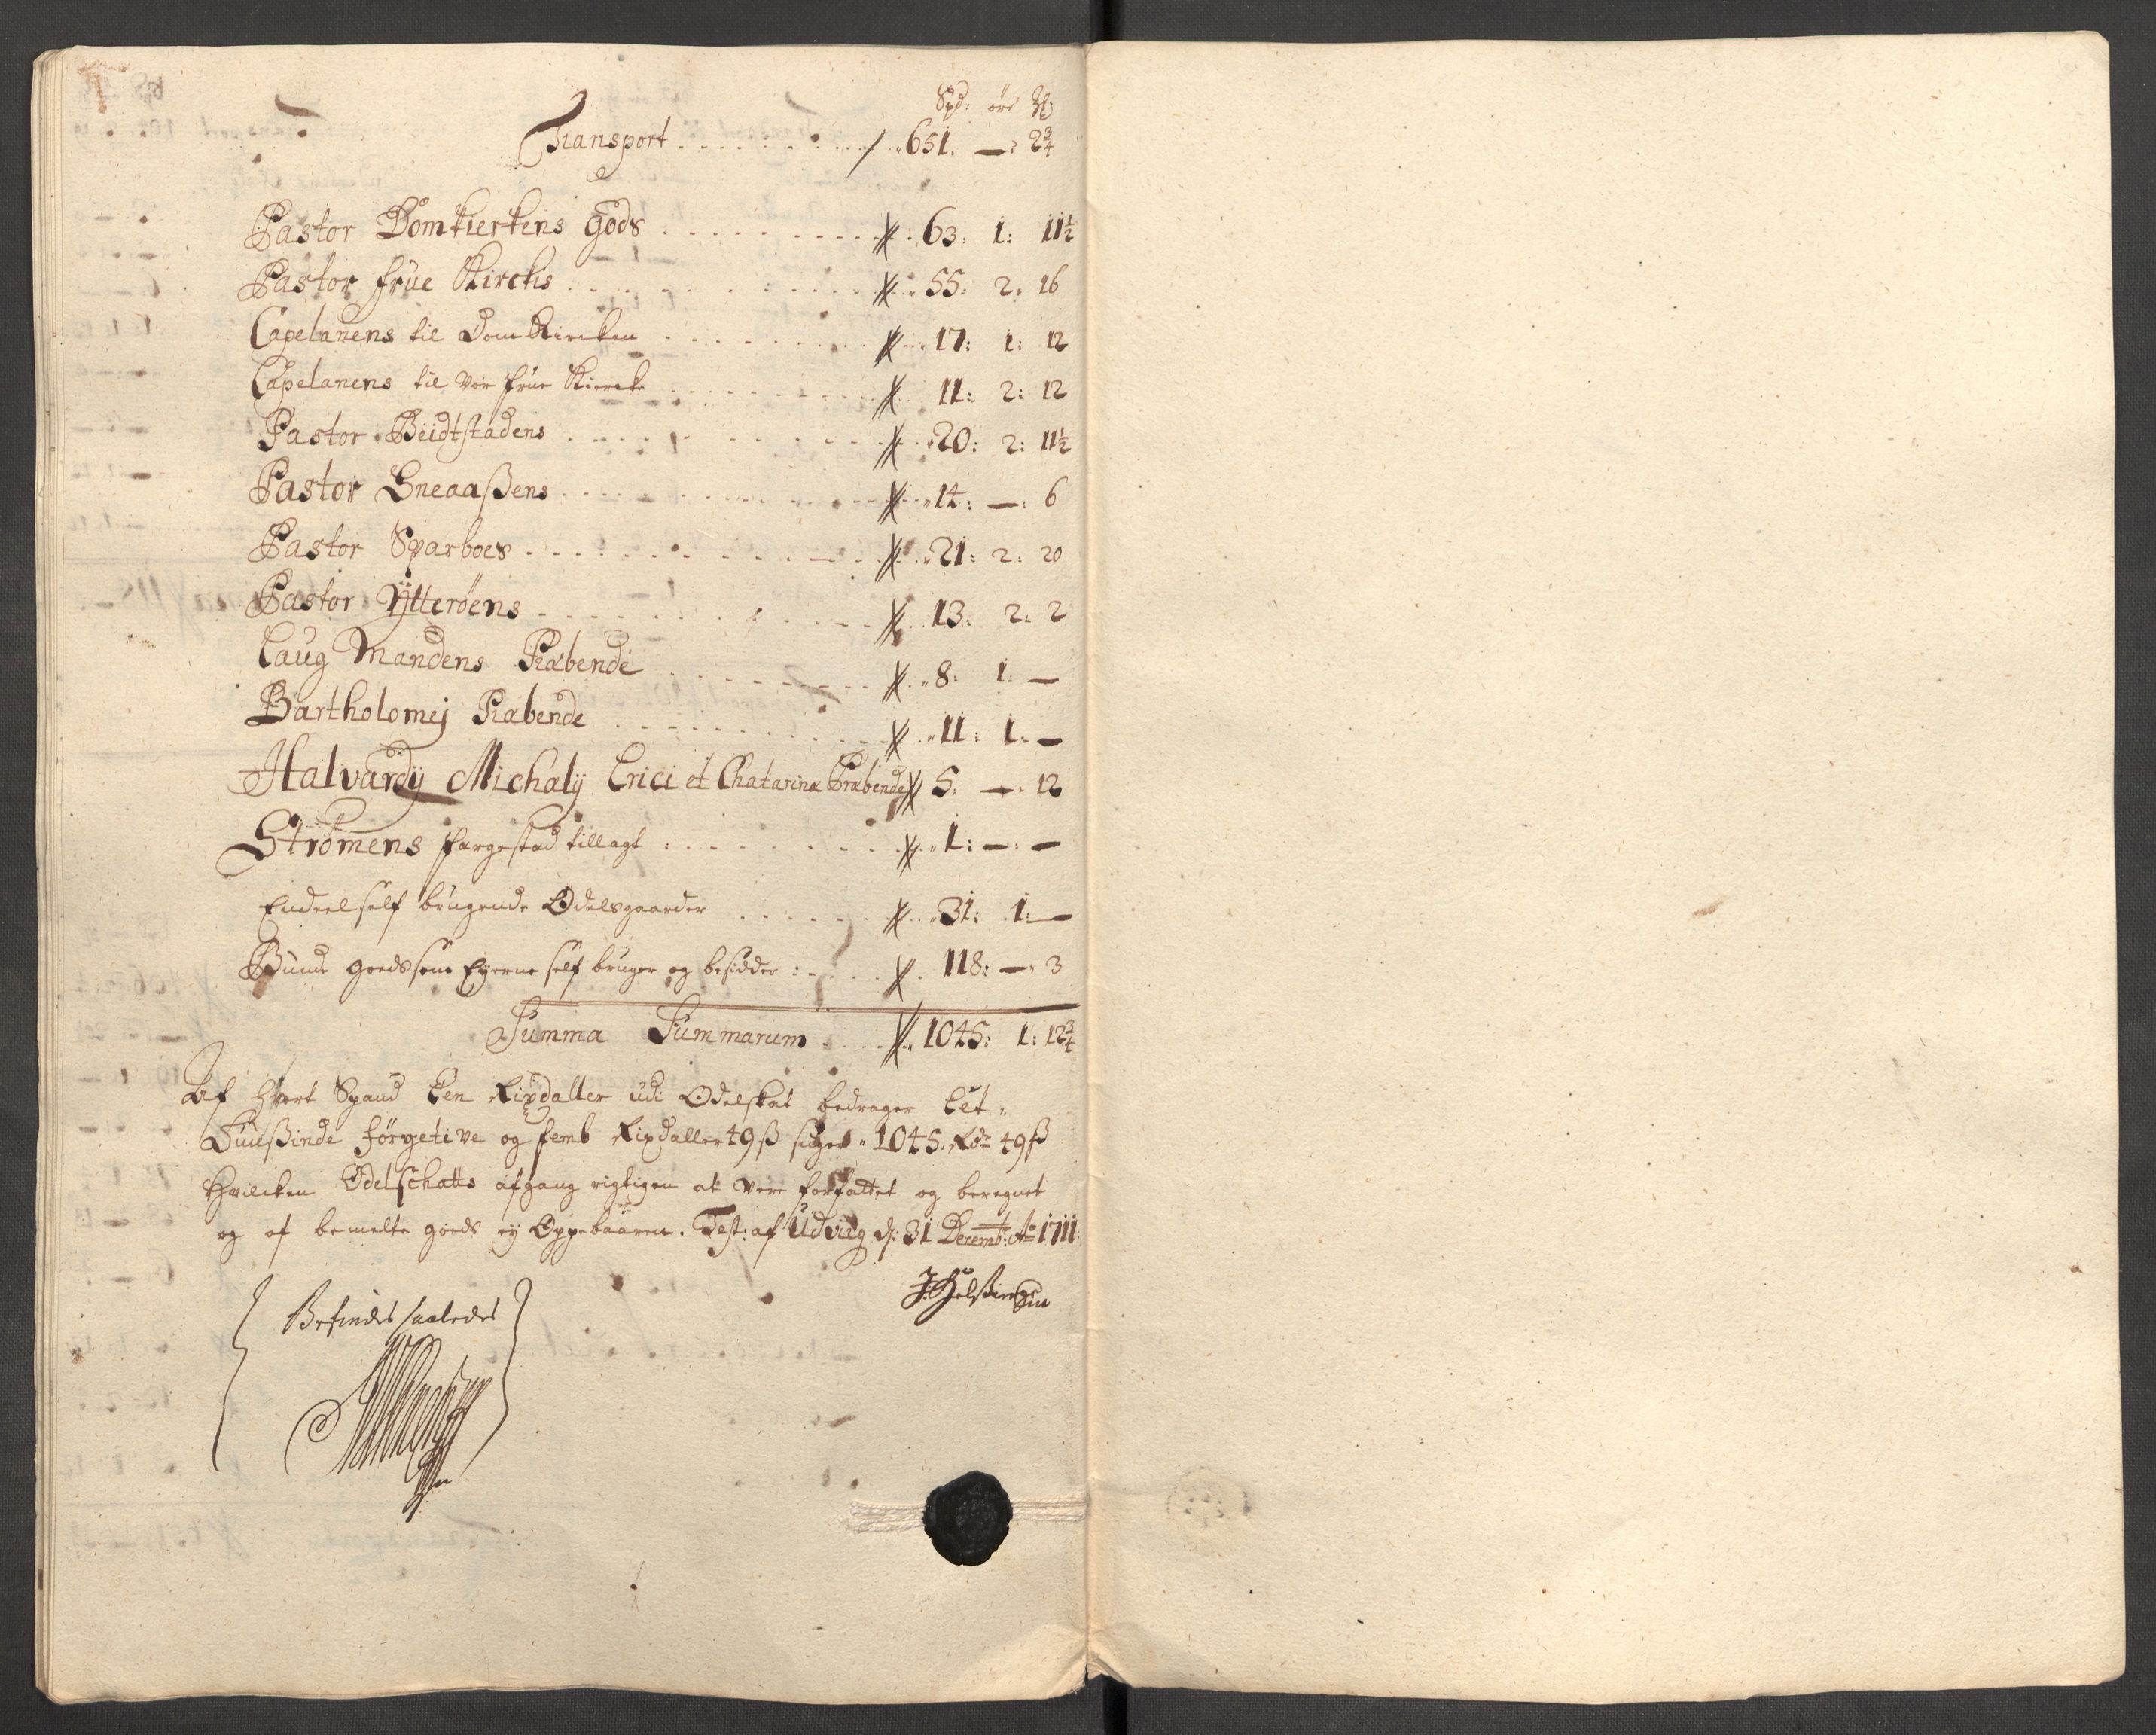 Spd: öre Mk
Transport . . . . . . . . . / . 651. —: 2¾
Pastor Domkierkens gods . . . . . . . . . . 63: 1: 11½
Pastor frue Kirckis . . . . . . . . . . 55: 2: 16
Capelanens til Dom Kircken . . . . . . . . . 17: 1: 12
Capelanens til vor frue Kiercke . . . . . . . . . 11: 2: 12
Pastor Beidtstadens . . . . . . . . . . 20: 2: 11½
Pastor Sneaaßens . . . . . . . . . . 14: —: 6
Pastor Sparboes . . . . . . . . . . 21: 2: 20
Pastor Ytterøens . . . . . . . . . . 13: 2: 2
Laug Mandens Præbende . . . . . . . . . 8: 1: —
Bartholomej Præbende . . . . . . . . . 11: 1: —
Halvardij Michaelij Erici et Chatarina Præbende 5: —: 12
Strömens færgestad tillagt : . . . . . . . . 1: —: —
Endeel self brugende Odelsgaarder . . . . . . 31: 1: —
Bunde goeds som Eyerne self bruger og besidder : . . . . 118: —: 3
Summa Summarum . . . . 1045: 1: 12¾
Af hvert Spand Een Rixdaller udi Odelskat bedrager Eet
Tuußinde förgetive og femb Rixdaller 49 ß siger 1045 Rdr 49 ß
Hvilcken Odelschatts afgang rigtigen at vere forfattet og beregnet
og af bemelte goeds ej Oppebaaren. Test: af Udvig d: 31 Decemb: Ao 1711:
Befindes saaledes